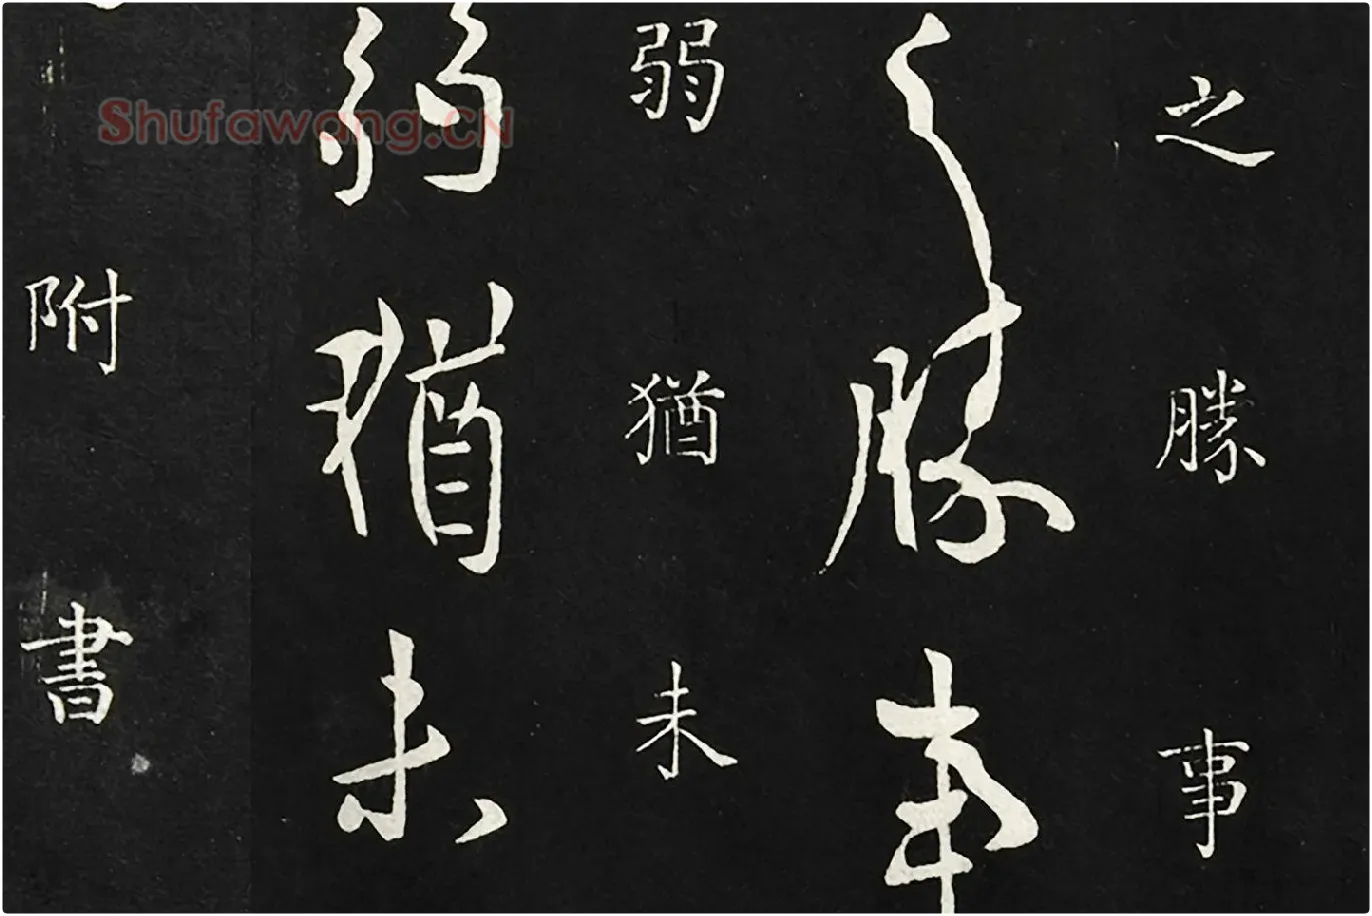 之勝事
之勝事
弱猶未
弱猶未
附書
Shufawang.CN